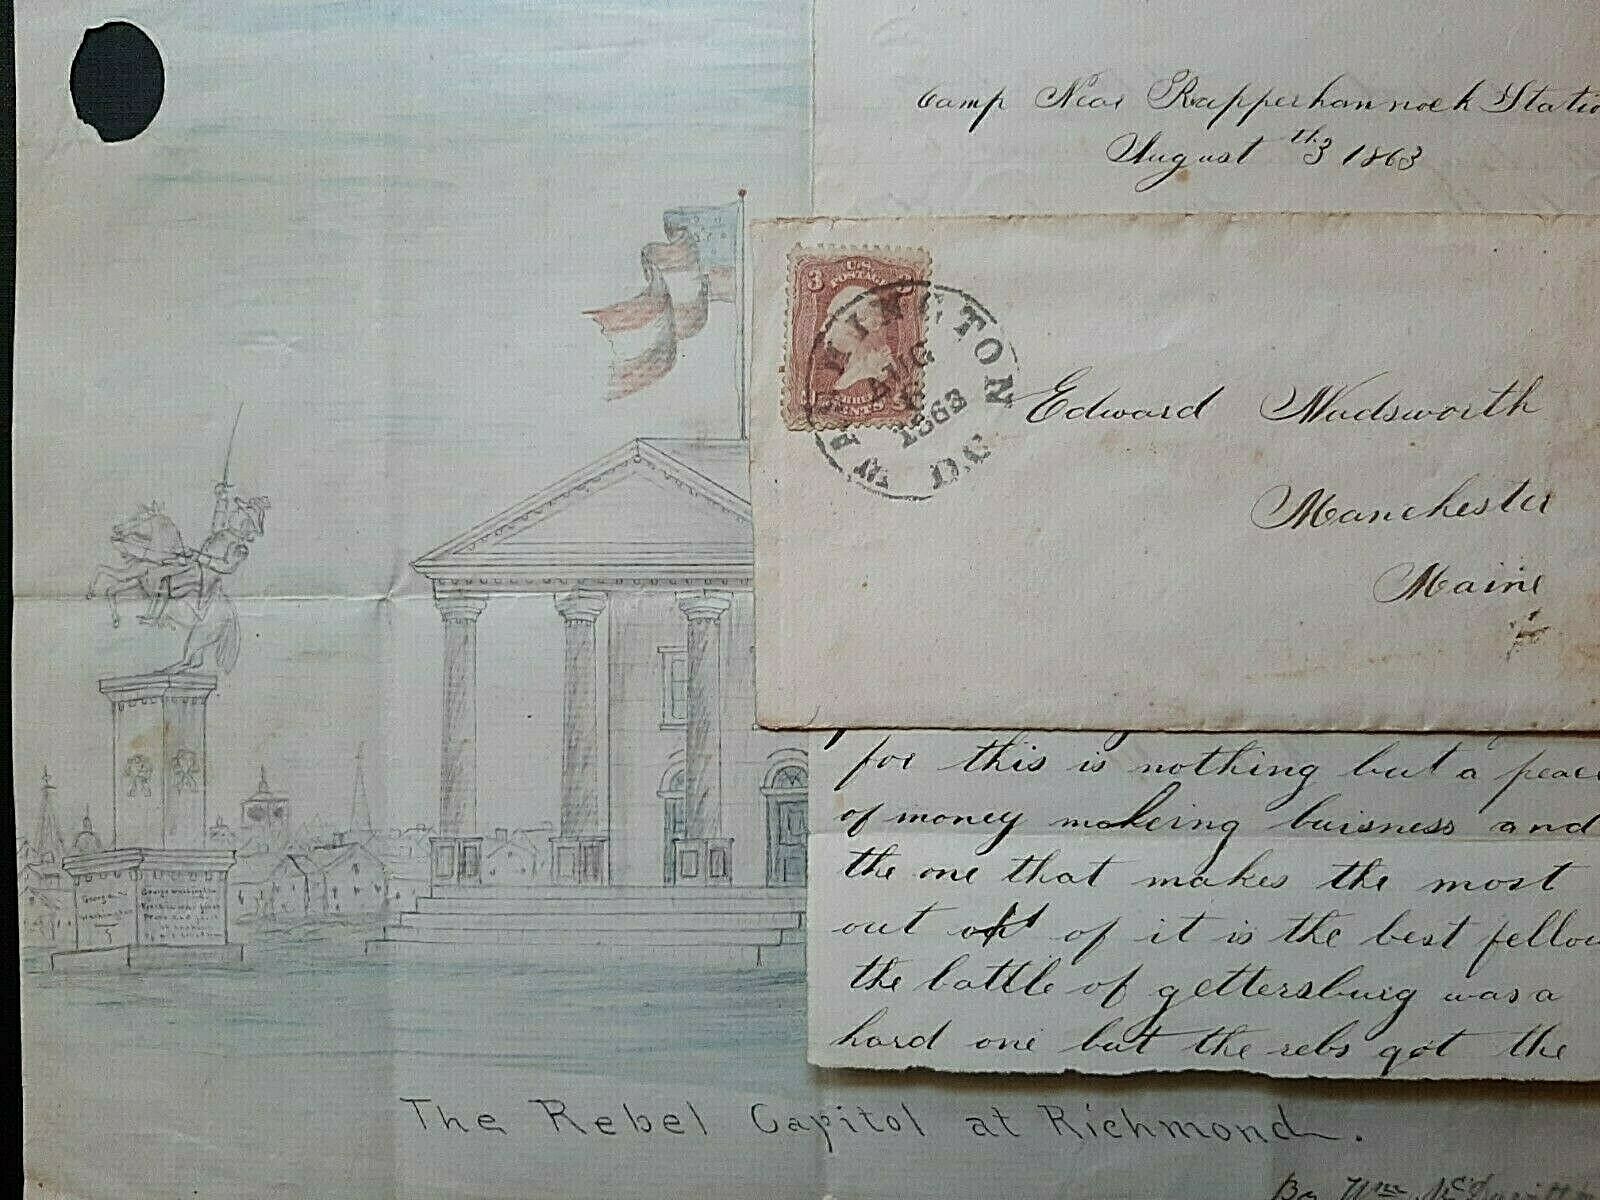 Camp Near Rapperhannock Statio
August th3 1863
3 U.S. 3
POSTAGE
CENTS
WASHINGTON D.C.
AUG
1863
Edward Wadsworth
Manchester
Maine
for this is nothing but a peace
of money makeing buisness and
the one that makes the most
out of it is the best fellow
the battle of gettersburg was a
hard one but the rebs got the
George
Washington
George Washington
The Rebel Capitol at Richmond.
By Wm